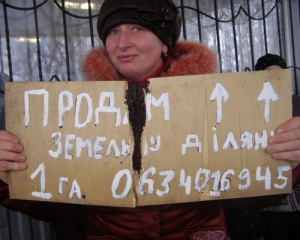 ПРОДАМ ↑ ↑
ЗЕМЕЛЬНУ ДІЛЯНК
1 ГА. 0634016945